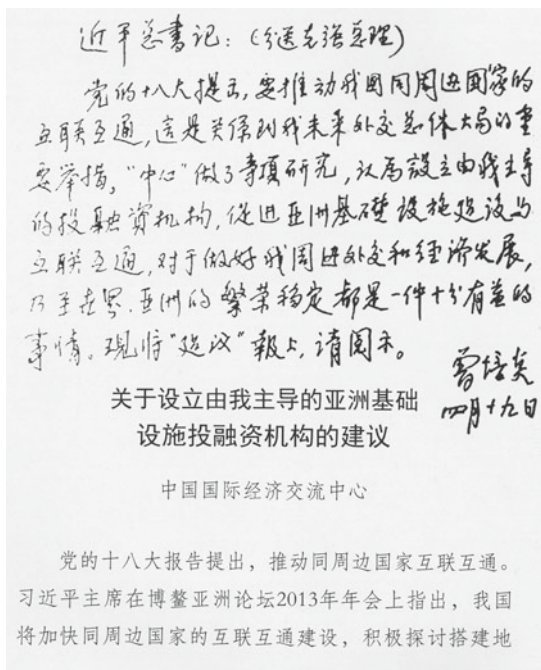 近平总書记：（分送克强总理）
党的十八大提出，要推动我国同周边国家的
互联互通，這是关係到我未来外交总体大局的重
要举措，“中心”做了专项研究，认為設立由我主导
的投融资机构，促进亚洲基礎设施建设与
互联互通，对于做好我周边外交和经济发展，
乃至世界、亚洲的繁荣稳定都是一件十分有益的
事情。现将“建议”報上，请阅示。
曾培炎
四月十九日
关于设立由我主导的亚洲基础
设施投融资机构的建议
中国国际经济交流中心
党的十八大报告提出，推动同周边国家互联互通。
习近平主席在博鳌亚洲论坛2013年年会上指出，我国
将加快同周边国家的互联互通建设，积极探讨搭建地